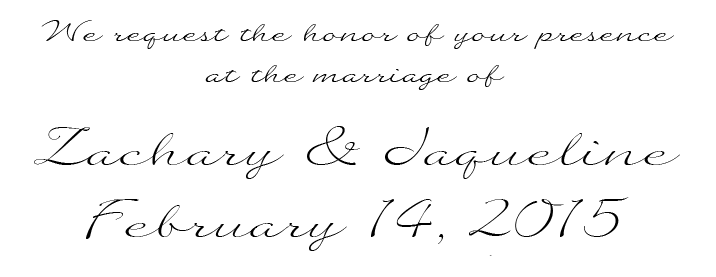 We request the honor of your presence
at the marriage of
Zachary & Jaqueline
February 14, 2015